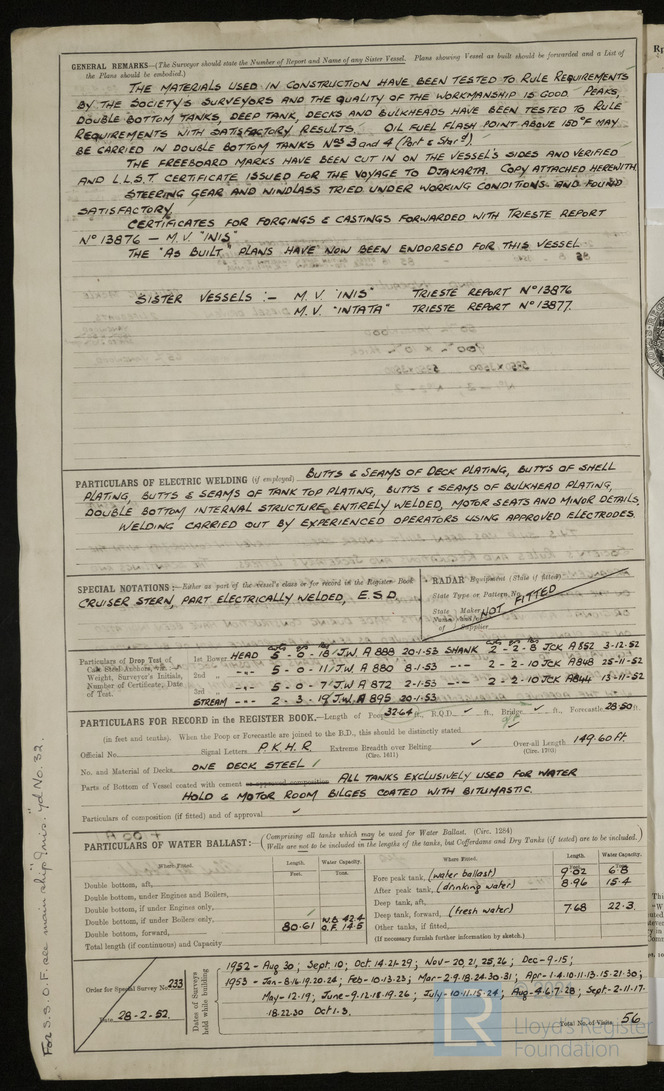 GENERAL REMARKS—(The Surveyor should state the Number of Report and Name of any Sister Vessel. Plans showing Vessel as built should be forwarded and a List of
the Plans should be embodied.)
THE MATERIALS USED IN CONSTRUCTION HAVE BEEN TESTED TO RULE REQUIREMENTS
BY THE SOCIETY'S SURVEYORS AND THE QUALITY OF THE WORKMANSHIP IS GOOD. PEAKS,
DOUBLE BOTTOM TANKS, DEEP TANK, DECKS AND BULKHEADS HAVE BEEN TESTED TO RULE
REQUIREMENTS WITH SATISFACTORY RESULTS. OIL FUEL FLASH POINT ABOVE 150°F MAY
BE CARRIED IN DOUBLE BOTTOM TANKS Nos 3 and 4 (Port & Starbd).
THE FREEBOARD MARKS HAVE BEEN CUT IN ON THE VESSEL'S SIDES AND VERIFIED
AND L.L.S.T CERTIFICATE ISSUED FOR THE VOYAGE TO DJAKARTA. COPY ATTACHED HEREWITH.
STEERING GEAR AND WINDLASS TRIED UNDER WORKING CONDITIONS AND FOUND
SATISFACTORY.
CERTIFICATES FOR FORGINGS & CASTINGS FORWARDED WITH TRIESTE REPORT
No 13876 — M.V. "INIS"
THE "AS BUILT" PLANS HAVE NOW BEEN ENDORSED FOR THIS VESSEL
SISTER VESSELS :— M.V. "INIS" TRIESTE REPORT No 13876
M.V. "INTATA" TRIESTE REPORT No 13877.
PARTICULARS OF ELECTRIC WELDING (if employed) BUTTS & SEAMS OF DECK PLATING, BUTTS OF SHELL
PLATING, BUTTS & SEAMS OF TANK TOP PLATING, BUTTS & SEAMS OF BULKHEAD PLATING,
DOUBLE BOTTOM INTERNAL STRUCTURE ENTIRELY WELDED, MOTOR SEATS AND MINOR DETAILS.
WELDING CARRIED OUT BY EXPERIENCED OPERATORS USING APPROVED ELECTRODES.
SPECIAL NOTATIONS:—Either as part of the vessel's class or for record in the Register Book
CRUISER STERN, PART ELECTRICALLY WELDED, E.S.D.
RADAR Equipment (State if fitted)
State Type or Pattern No.
NOT FITTED
State Maker
of Supplier
Particulars of Drop Test of
Cast Steel Anchors, viz.:—
Weight, Surveyor's Initials,
Number of Certificate, Date
of Test.
1st Bower HEAD 5 - 0 - 18 J.W. A 888 20-1-53 SHANK 2 - 2 - 8 JCK A852 3-12-52
2nd " -"- 5 - 0 - 11 J.W A 880 8-1-53 -"- 2 - 2 - 10 JCK A848 25-11-52
3rd " -"- 5 - 0 - 7 J.W A 872 2-1-53 -"- 2 - 2 - 10 JCK A844 13-11-52
STREAM -"- 2 - 3 - 19 J.W. A 895 20-1-53
PARTICULARS FOR RECORD in the REGISTER BOOK.—Length of Poop 32.64 ft., R.Q.D. ✓ ft., Bridge ✓ ft., Forecastle 28.50 ft.
(in feet and tenths). When the Poop or Forecastle are joined to the B.D., this should be distinctly stated
Official No. Signal Letters P.K.H.R. Extreme Breadth over Belting ✓ Over-all Length 149.60 ft
(Circ. 1611) (Circ. 1703)
No. and Material of Decks ONE DECK STEEL
Parts of Bottom of Vessel coated with cement or approved composition ALL TANKS EXCLUSIVELY USED FOR WATER
HOLD & MOTOR ROOM BILGES COATED WITH BITUMASTIC.
Particulars of composition (if fitted) and of approval ✓
PARTICULARS OF WATER BALLAST:—(Comprising all tanks which may be used for Water Ballast. (Circ. 1284)
Wells are not to be included in the lengths of the tanks, but Cofferdams and Dry Tanks (if tested) are to be included.)
Where Fitted. Length. Water Capacity. Where Fitted. Length. Water Capacity.
Feet. Tons. Feet. Tons.
Double bottom, aft, Fore peak tank, (water ballast) 9.02 6.8
Double bottom, under Engines and Boilers, After peak tank, (drinking water) 8.96 15.4
Double bottom, if under Engines only, Deep tank, aft,
Double bottom, if under Boilers only, Deep tank, forward, (fresh water) 7.68 22.3
Double bottom, forward, 80.61 W.B. 42.4 O.F. 14.5 Other tanks, if fitted,
Total length (if continuous) and Capacity (If necessary furnish further information by sketch.)
Order for Special Survey No. 233
Date 28-2-52.
Dates of Surveys held while building
1952 - Aug 30; Sept. 10; Oct. 14.21.29; Nov - 20.21,25,26; Dec - 9.15;
1953 - Jan - 8.16.19.20.26; Feb - 10.13.23; Mar - 2.9.18.24.30.31; Apr - 1.4.10.11.13.15.21.30;
May - 12.19; June - 9.12.18.19.26; July - 10.11.15.24; Aug - 4.6.7.28; Sept. - 2.11.17.
18.22.30 Oct 1.3.
Total No. of Visits 56
For S.S. O.F. see main ship "Inis" yd No. 32.
LR
Lloyd's Register
Foundation